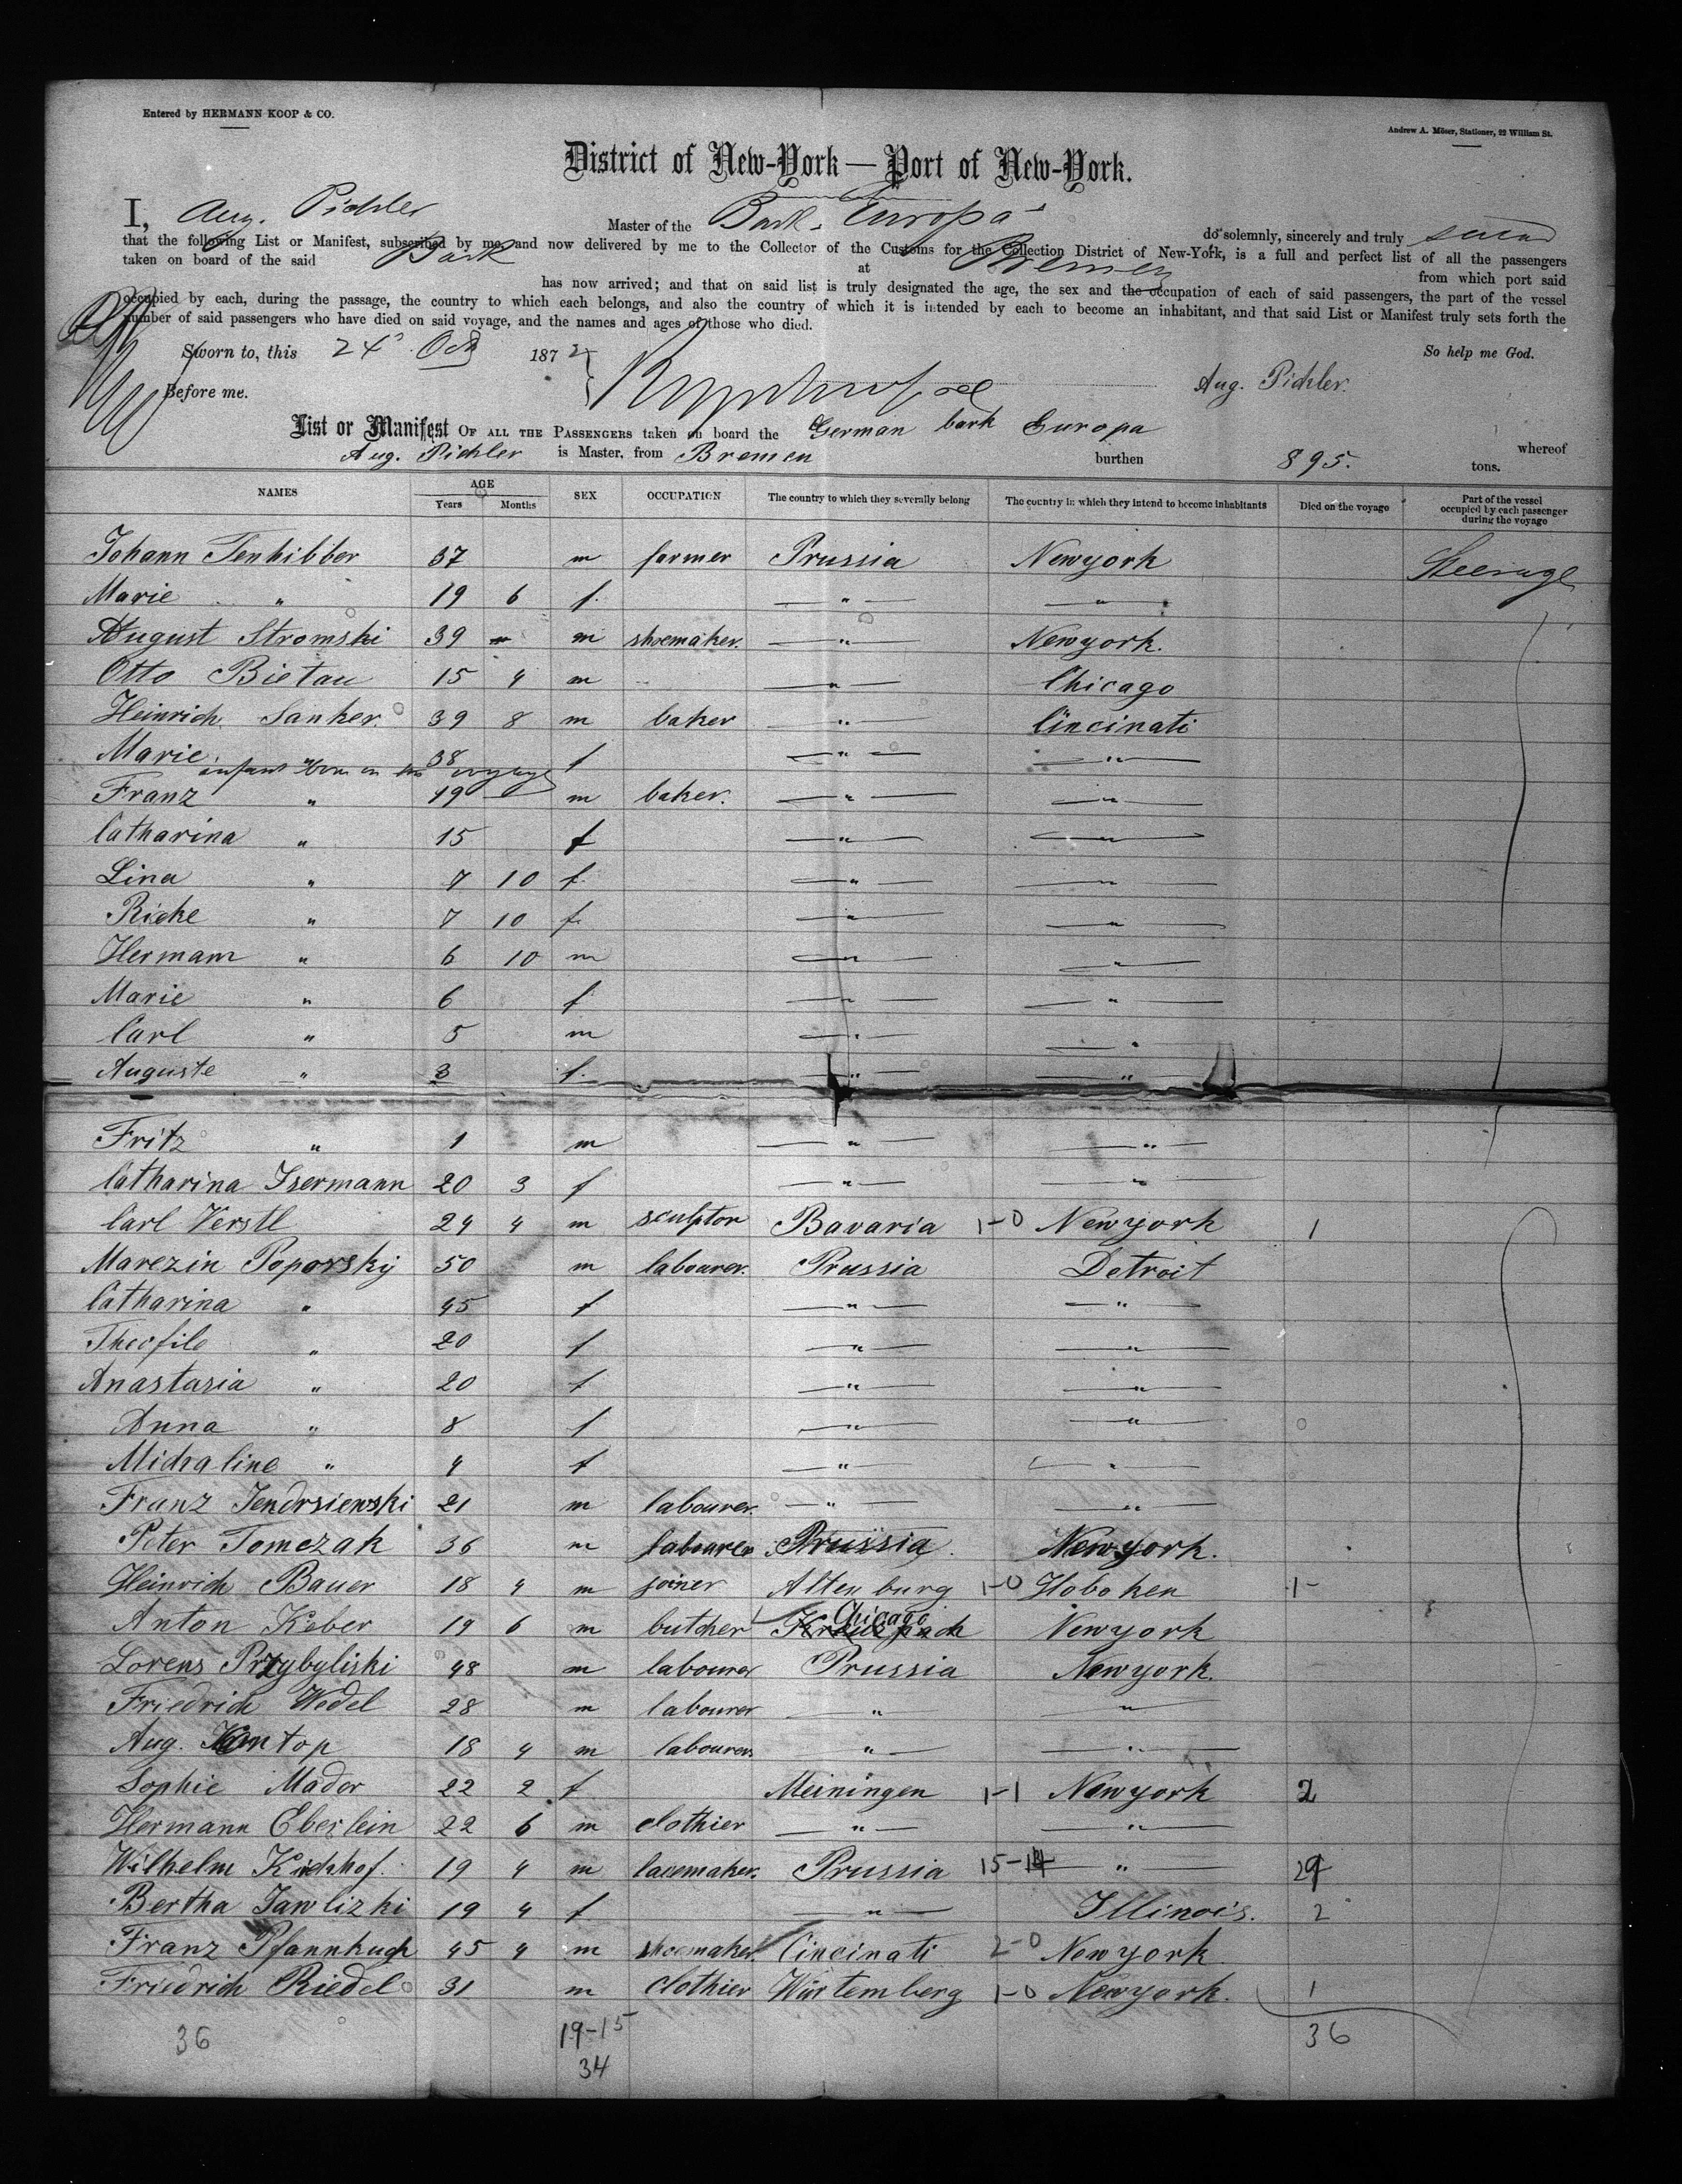 Entered by HERMANN KOOP & CO.
Andrew A. Möser, Stationer, 22 William St.
District of New-York — Port of New-York.
I, Aug. Pichler Master of the Bark Europa do solemnly, sincerely and truly swear
that the following List or Manifest, subscribed by me, and now delivered by me to the Collector of the Customs for the Collection District of New-York, is a full and perfect list of all the passengers
taken on board of the said Bark at Bremen from which port said
has now arrived; and that on said list is truly designated the age, the sex and the occupation of each of said passengers, the part of the vessel
occupied by each, during the passage, the country to which each belongs, and also the country of which it is intended by each to become an inhabitant, and that said List or Manifest truly sets forth the
number of said passengers who have died on said voyage, and the names and ages of those who died.
Sworn to, this 24 Oct 1872 So help me God.
Before me. Aug. Pichler.
List or Manifest OF ALL THE PASSENGERS taken on board the German bark Europa whereof
Aug. Pichler is Master, from Bremen burthen 895. tons.
NAMES AGE SEX OCCUPATION The country to which they severally belong The country in which they intend to become inhabitants Died on the voyage Part of the vessel occupied by each passenger during the voyage
Years Months
Johann Tenhibber 37 m farmer Prussia Newyork Steerage
Marie " 19 6 f. — " — — " —
August Stromski 39 m shoemaker. — " — Newyork.
Otto Bietau 15 4 m — " — Chicago
Heinrich Sanker. 39 8 m baker — " — Cincinati
Marie " 38 f — " — — " —
infant born on the voyage
Franz " 19 m baker. — " — — " —
Catharina " 15 f — " — — " —
Lina " 7 10 f. — " — — " —
Rieke " 7 10 f. — " — — " —
Hermann " 6 10 m — " — — " —
Marie " 6 f — " — — " —
Carl " 5 m — " — — " —
Auguste " 3 f. — " — — " —
Fritz " 1 m — " — — " —
Catharina Isermann 20 3 f — " — — " —
Carl Verstl 24 4 m sculptor Bavaria 1-0 Newyork 1
Marezin Poporskij 50 m labourer. Prussia Detroit
Catharina " 45 f — " — — " —
Theofile " 20 f — " — — " —
Anastasia " 20 f — " — — " —
Anna " 8 f — " — — " —
Michaline " 4 f — " — — " —
Franz Jendrsiewski 21 m labourer. — " — — " —
Peter Tomczak 36 m labourer Prussia. Newyork.
Heinrich Bauer 18 4 m joiner Altenburg 1-0 Hoboken 1
Anton Keber 19 6 m butcher Chicago Newyork
Lorens Przybyliski 48 m labourer Prussia Newyork.
Friedrich Wedel 28 m labourer — " — — " —
Aug. Kontop 18 4 m labourer — " — — " —
Sophie Mador 22 2 f Meiningen 1-1 Newyork 2
Hermann Eberlein 22 6 m clothier — " — — " —
Wilhelm Kirchhof. 19 4 m lacemaker. Prussia 15-14 — " — 29
Bertha Jawlizki 19 4 f — " — Illinois. 2
Franz Pfannkuch 45 4 m shoemaker. Cincinati 2-0 Newyork
Friedrich Riedel 31 m clothier Würtemberg 1-0 Newyork. 1
36 19-15 36
34